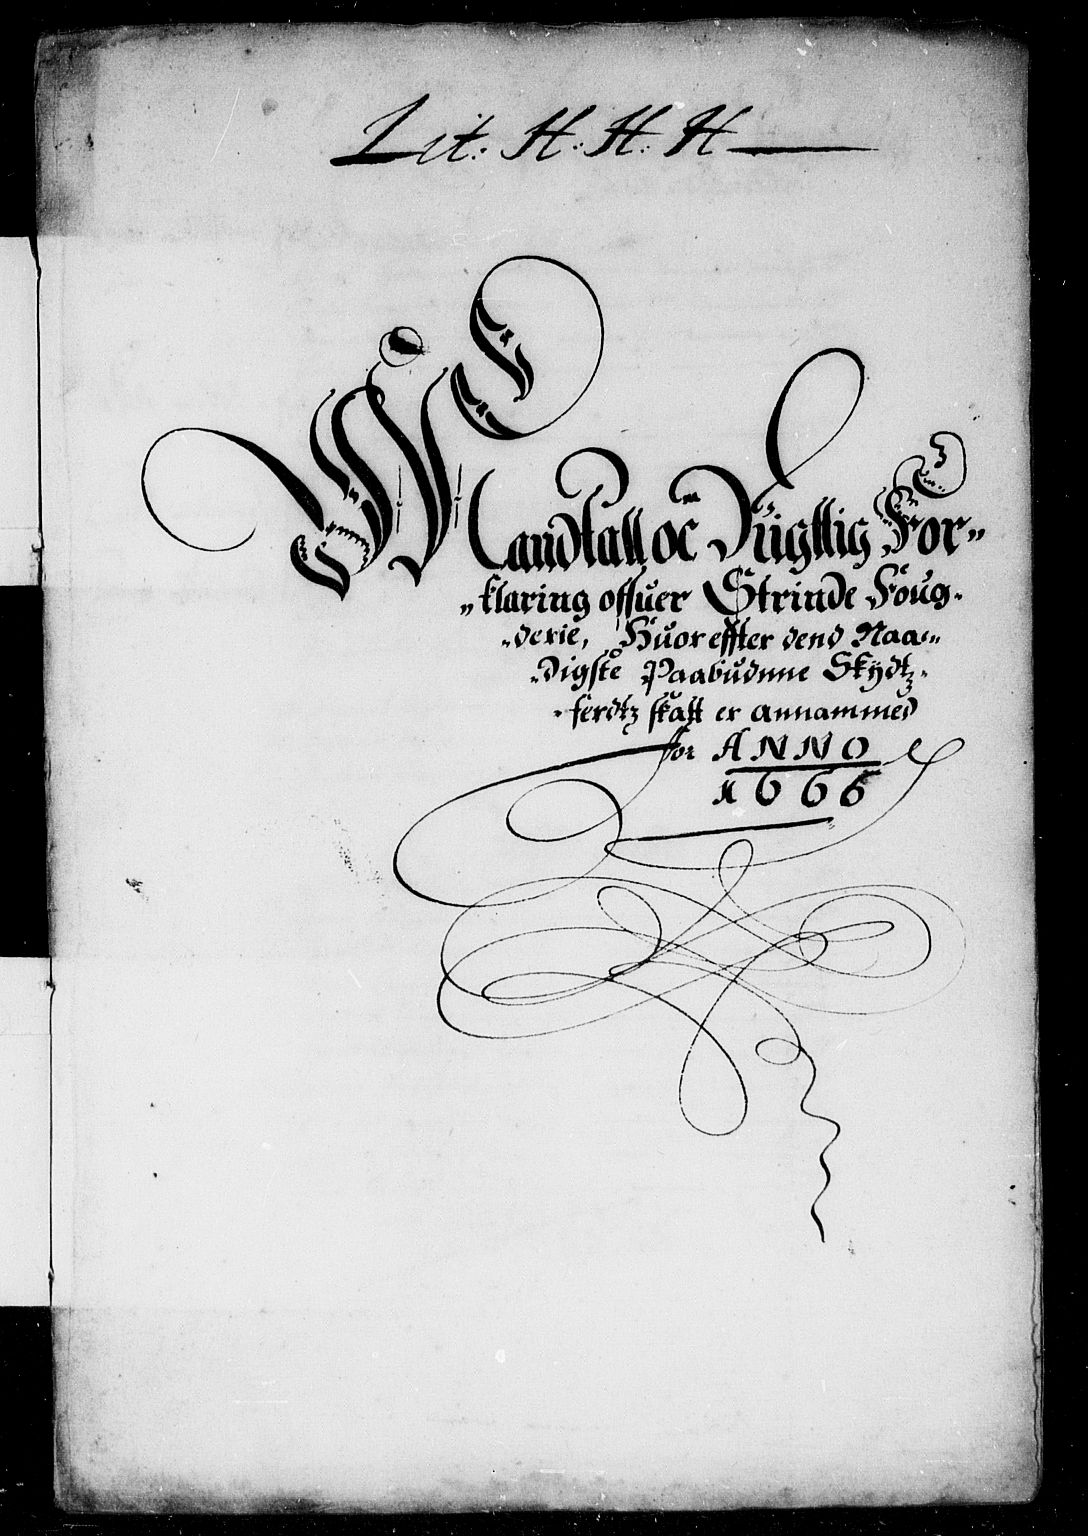 Lit: H: H: H
Mandtall oc Rigtig For„
„klaring offuer Strinde Foug-
-derie, Huoreffter dend Naa-
-digste Paabudnne Skydtz-
-ferdtz skatt er annammed
for ANNO
1666